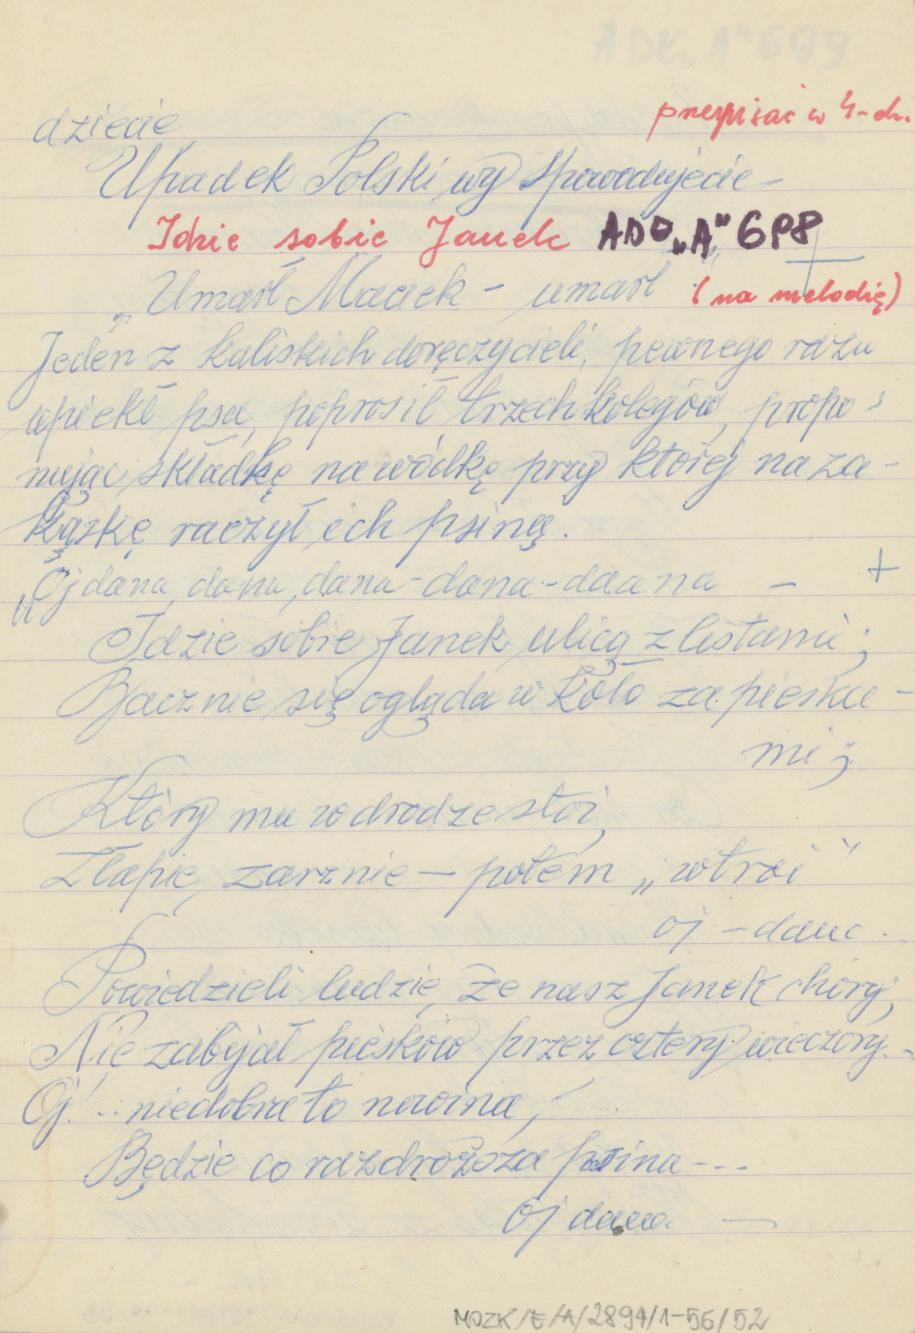 przepisać w 4-ch.
dziecie
Upadek Polski wy spowodujecie
Idzie sobie Janek ADO „A" 6P8
„Umarł Maciek – umarł" (na melodię)
Jeden z kaliskich doręczycieli, pewnego razu
upiekł psa, poprosił trzech kolegów, propo-
nując składkę na wódkę przy której na za-
kąskę raczył ich psiną.
„Oj dana, dana, dana-dana-daana – +
Idzie sobie Janek ulicą z listami;
Bacznie się ogląda w koło za pieska-
mi;
Który mu w drodze stoi,
Złapie, zarznie – potem „wtroi"
oj – dana.
Powiedzieli ludzie, że nasz Janek chory,
Nie zabijał piesków przez cztery wieczory.
Oj!... niedobra to nowina,
Będzie co raz droższa psina---
Oj dana –
MOZK/E/A/2894/1-56/52